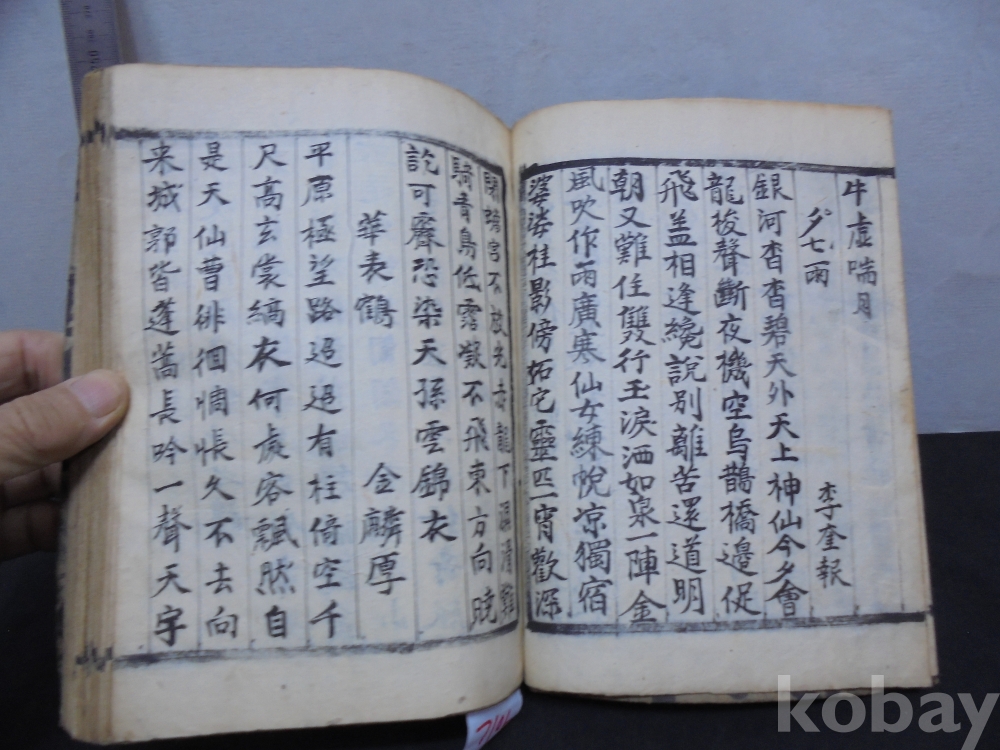 牛虛喘月
夕七雨 李奎報
銀河杳杳碧天外天上神仙今夕會
龍梭聲斷夜機空烏鵲橋邊促
飛盖相逢纔說別離苦還道明
朝又難住雙行玉淚洒如泉一陣金
風吹作雨廣寒仙女練帨凉獨宿
婆娑桂影傍拓它靈匹一宵歡深
閉蟾宮不放光赤龍下濕滑難
騎青鳥低露凝不飛東方向曉
訖可齊恐染天孫雲錦衣
華表鶴 金麟厚
平原極望路迢迢有柱倚空千
尺高玄裳縞衣何處客飄然自
是天仙曹徘徊惆悵久不去向
来城郭皆蓬蒿長吟一聲天宇
kobay